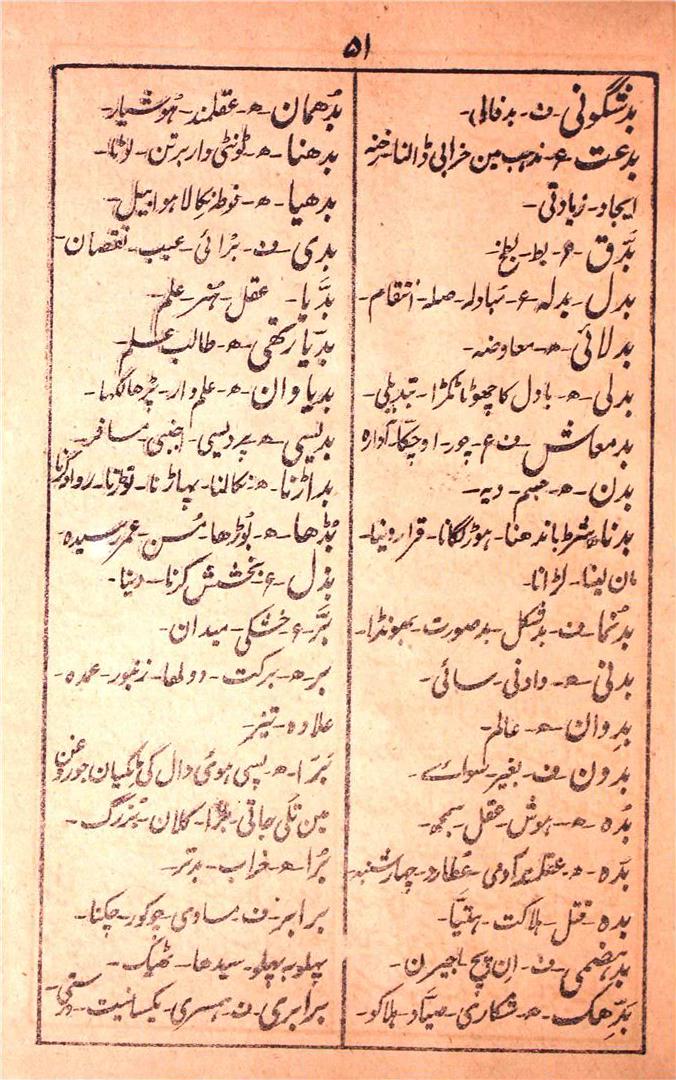 ۵۱
بدشگونی - ف - بدفالی -
بدعت - ع - مذہب مین خرابی ڈالنا - رخنہ
ایجاد - زیادتی -
بَرَق - ع - بط - بطخ -
بدل - بدلہ - ع - مبادلہ - صلہ - انتقام -
بدلائی - ھ - معاوضہ -
بدلی - ھ - بادل کا چھوٹا ٹکڑا - تبدیلی -
بدمعاش - ف ع - چور - اوچکّا - آوارہ
بدن - ھ - جسم - دیہ -
بدنا - ھ - شرط باندھنا - ہوڑ لگانا - قرار دینا -
مان لینا - لڑانا -
بدنما - ف - بدشکل - بدصورت - بھونڈا -
بدنی - ھ - وادنی - سائی -
بدوان - ھ - عالم -
بدون - ف - بغیر - سواے -
بُدہ - ھ - ہوش - عقل - سمجھ -
بدہ - ھ - عقلمند آدمی - عُطارد - چہارشنبہ -
بدہ - قتل - ہلاکت - ہتیّا -
بدہضمی - ف - ان پچ - اجیرن -
بَدِّھک - ھ - شکاری - صیّاد - ہلاکو -
بُدھمان - ھ - عقلمند - ہوشیار -
بدھنا - ھ - ٹونٹی دار برتن - لوٹا -
بدھیا - ھ - فوطہ نکالا ہوا بیل -
بدی - ف - بُرائی - عیب - نقصان -
بدّیا - عقل - ہنر - علم -
بدّیارتھی - ھ - طالب علم -
بدیاوان - ھ - علم دار - پڑھا لکھا -
بدیسی - ھ - پردیسی - اجنبی - مسافر -
بداڑنا - ھ - نکالنا - پھاڑنا - توڑنا -
بُڈھا - ھ - بُوڑھا - مُسن - عمر رسیدہ -
بذل - ع - بخشش کرنا - دینا -
بَرّ - ع - خشکی - میدان -
بر - ھ - برکت - دولھا - زنبور - عمدہ -
علاوہ - تیز -
بَرَا - ھ - پسی ہوئی دال کی ٹکیان جو روغن
مین تلی جاتی - بڑا - کلان - بزرگ -
بُرا - ھ - خراب - بدتر -
برابر - ف - مساوی - چوکور - چکنا -
پہلو بہ پہلو - سیدھا - ٹھیک -
برابری - ف - ہمسری - یکسانیت -